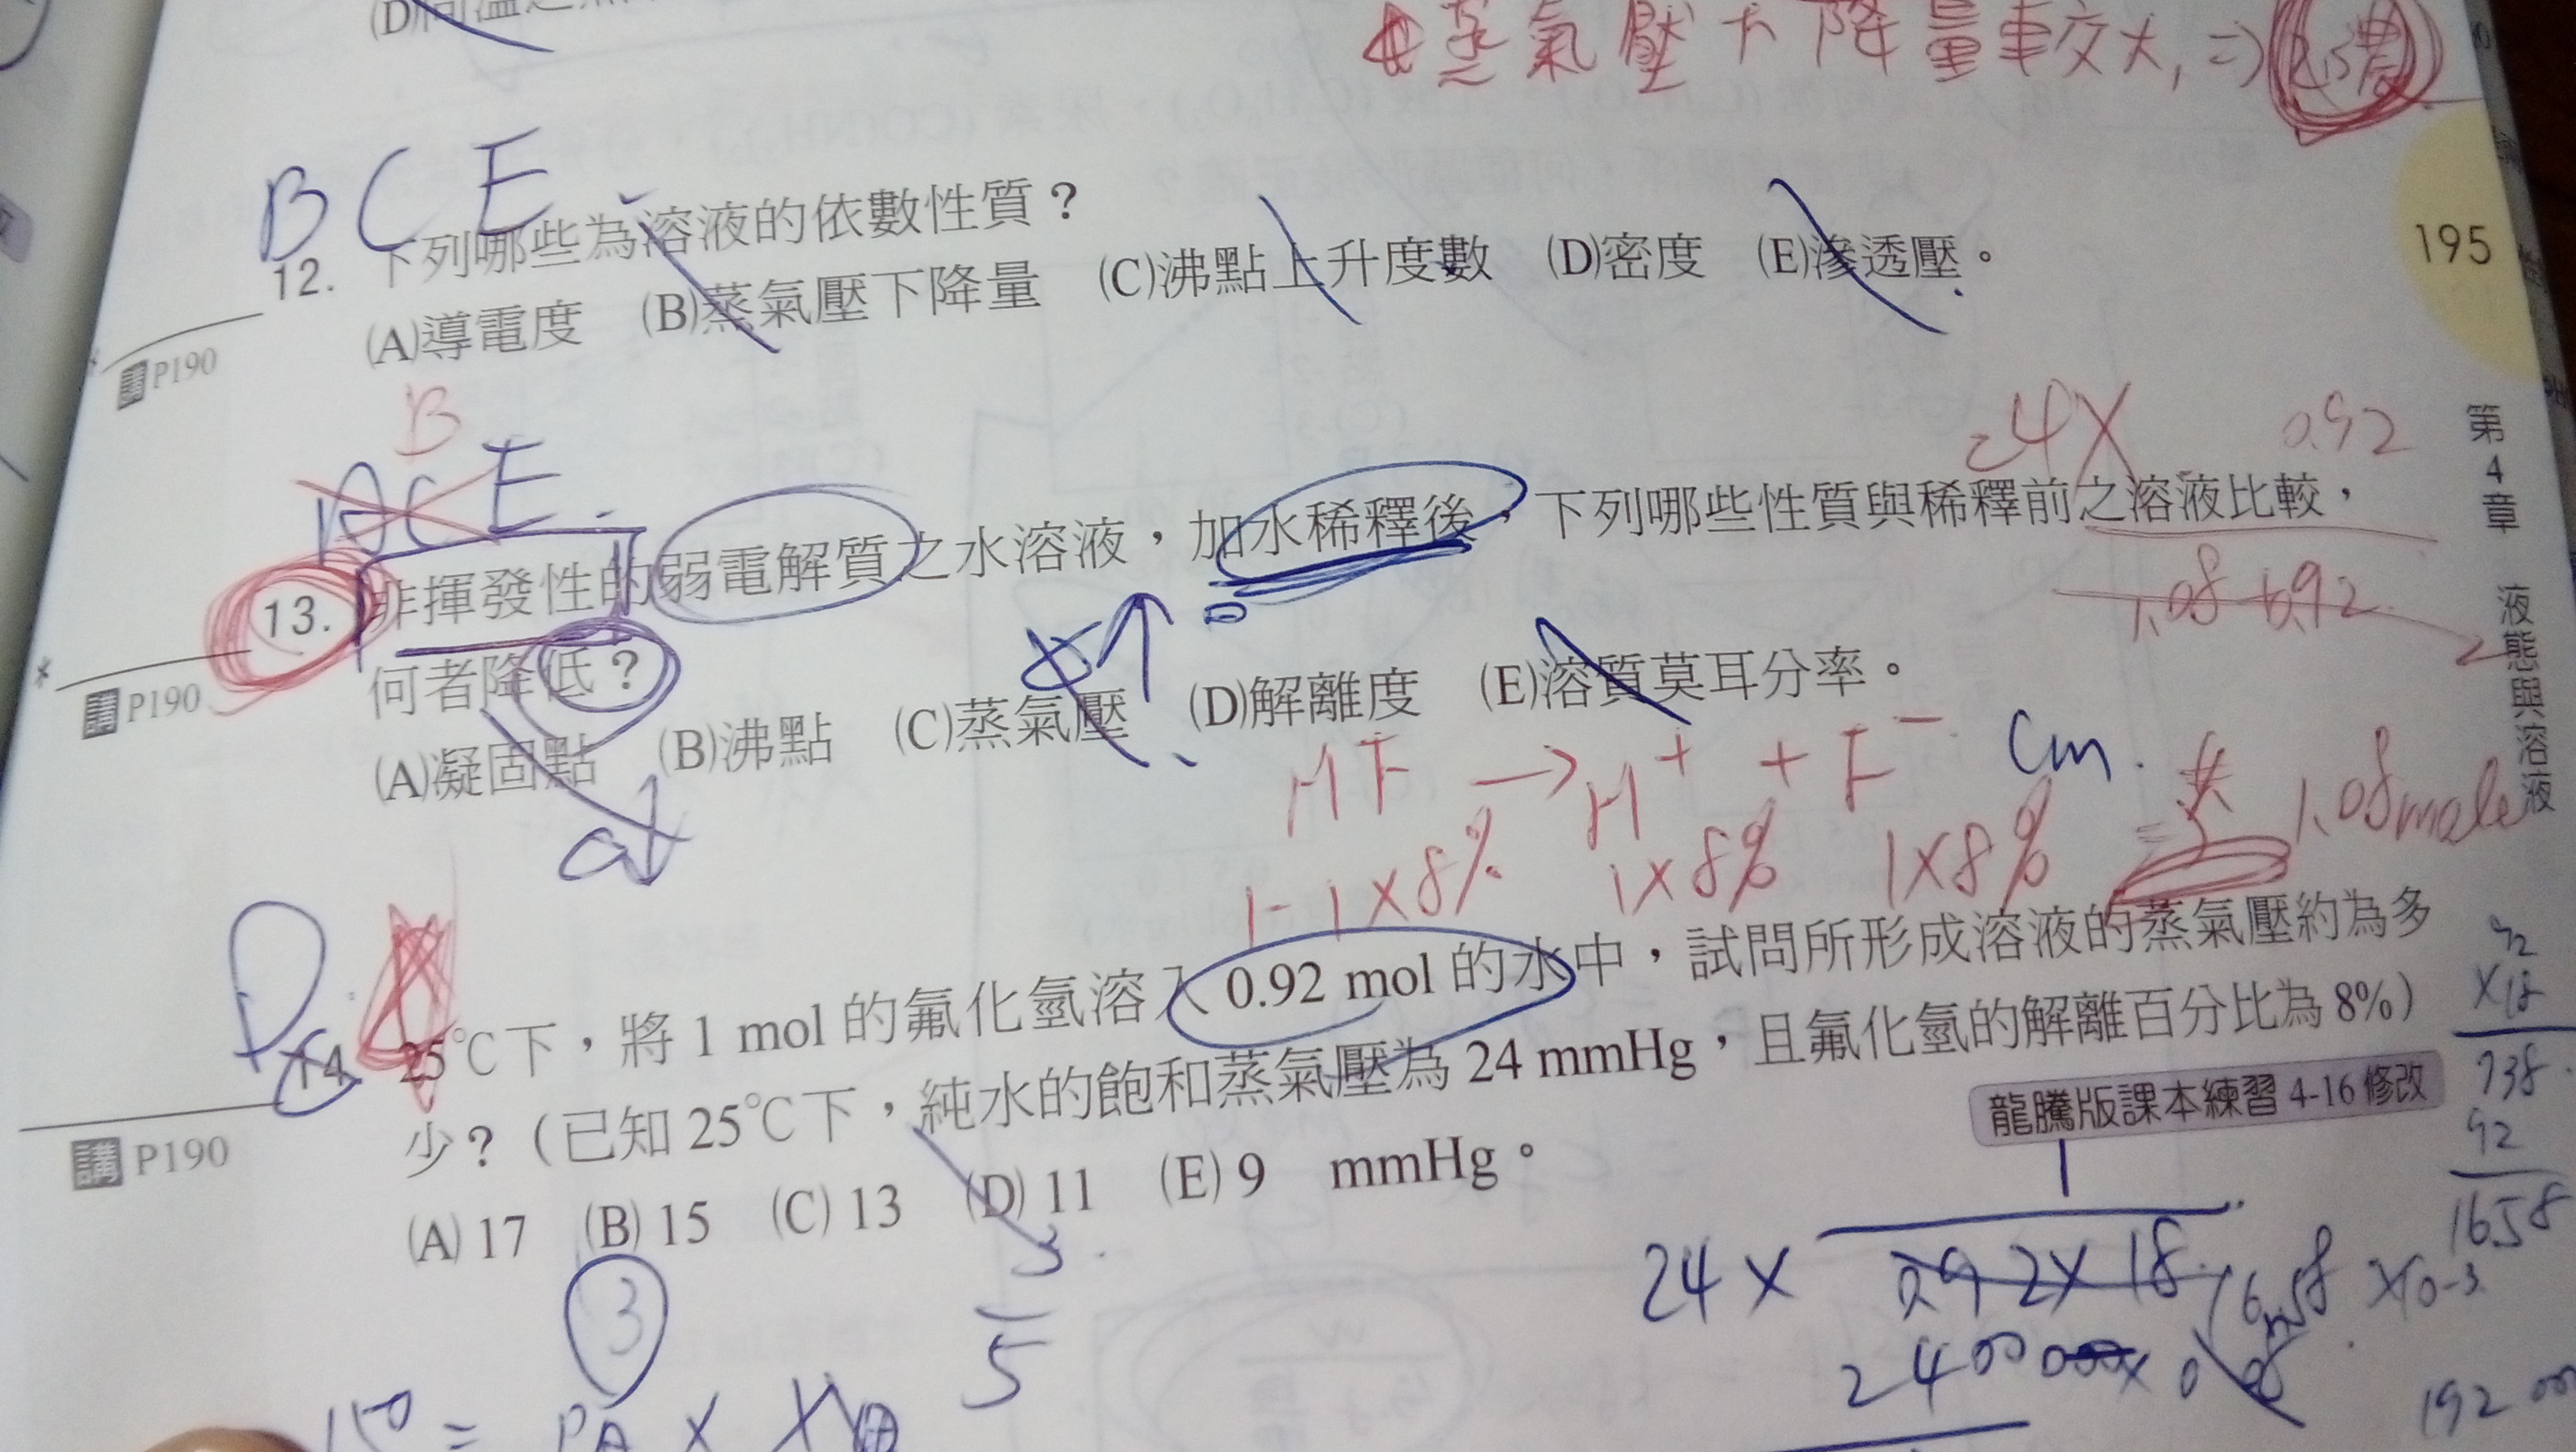 蒸氣壓下降量較大,⇒
B C E
12. 下列哪些為溶液的依數性質?
(A)導電度 (B)蒸氣壓下降量 (C)沸點上升度數 (D)密度 (E)滲透壓。
195
講 P190
B
ACE.
24X 0.92
1.08+0.92
13. 非揮發性的弱電解質之水溶液,加水稀釋後,下列哪些性質與稀釋前之溶液比較,
何者降低?
講 P190
(A)凝固點 (B)沸點 (C)蒸氣壓 (D)解離度 (E)溶質莫耳分率。
第4章 液態與溶液
HF → H⁺ + F⁻ Cm.
1-1×8% 1×8% 1×8% 1.08mole
D
14. 25℃下,將 1 mol 的氟化氫溶入 0.92 mol 的水中,試問所形成溶液的蒸氣壓約為多
少?(已知 25℃下,純水的飽和蒸氣壓為 24 mmHg,且氟化氫的解離百分比為 8%)
講 P190
龍騰版課本練習 4-16 修改
(A) 17 (B) 15 (C) 13 (D) 11 (E) 9 mmHg。
92
×18
738
92
1658
3
3
5
24 ×
0.92×18